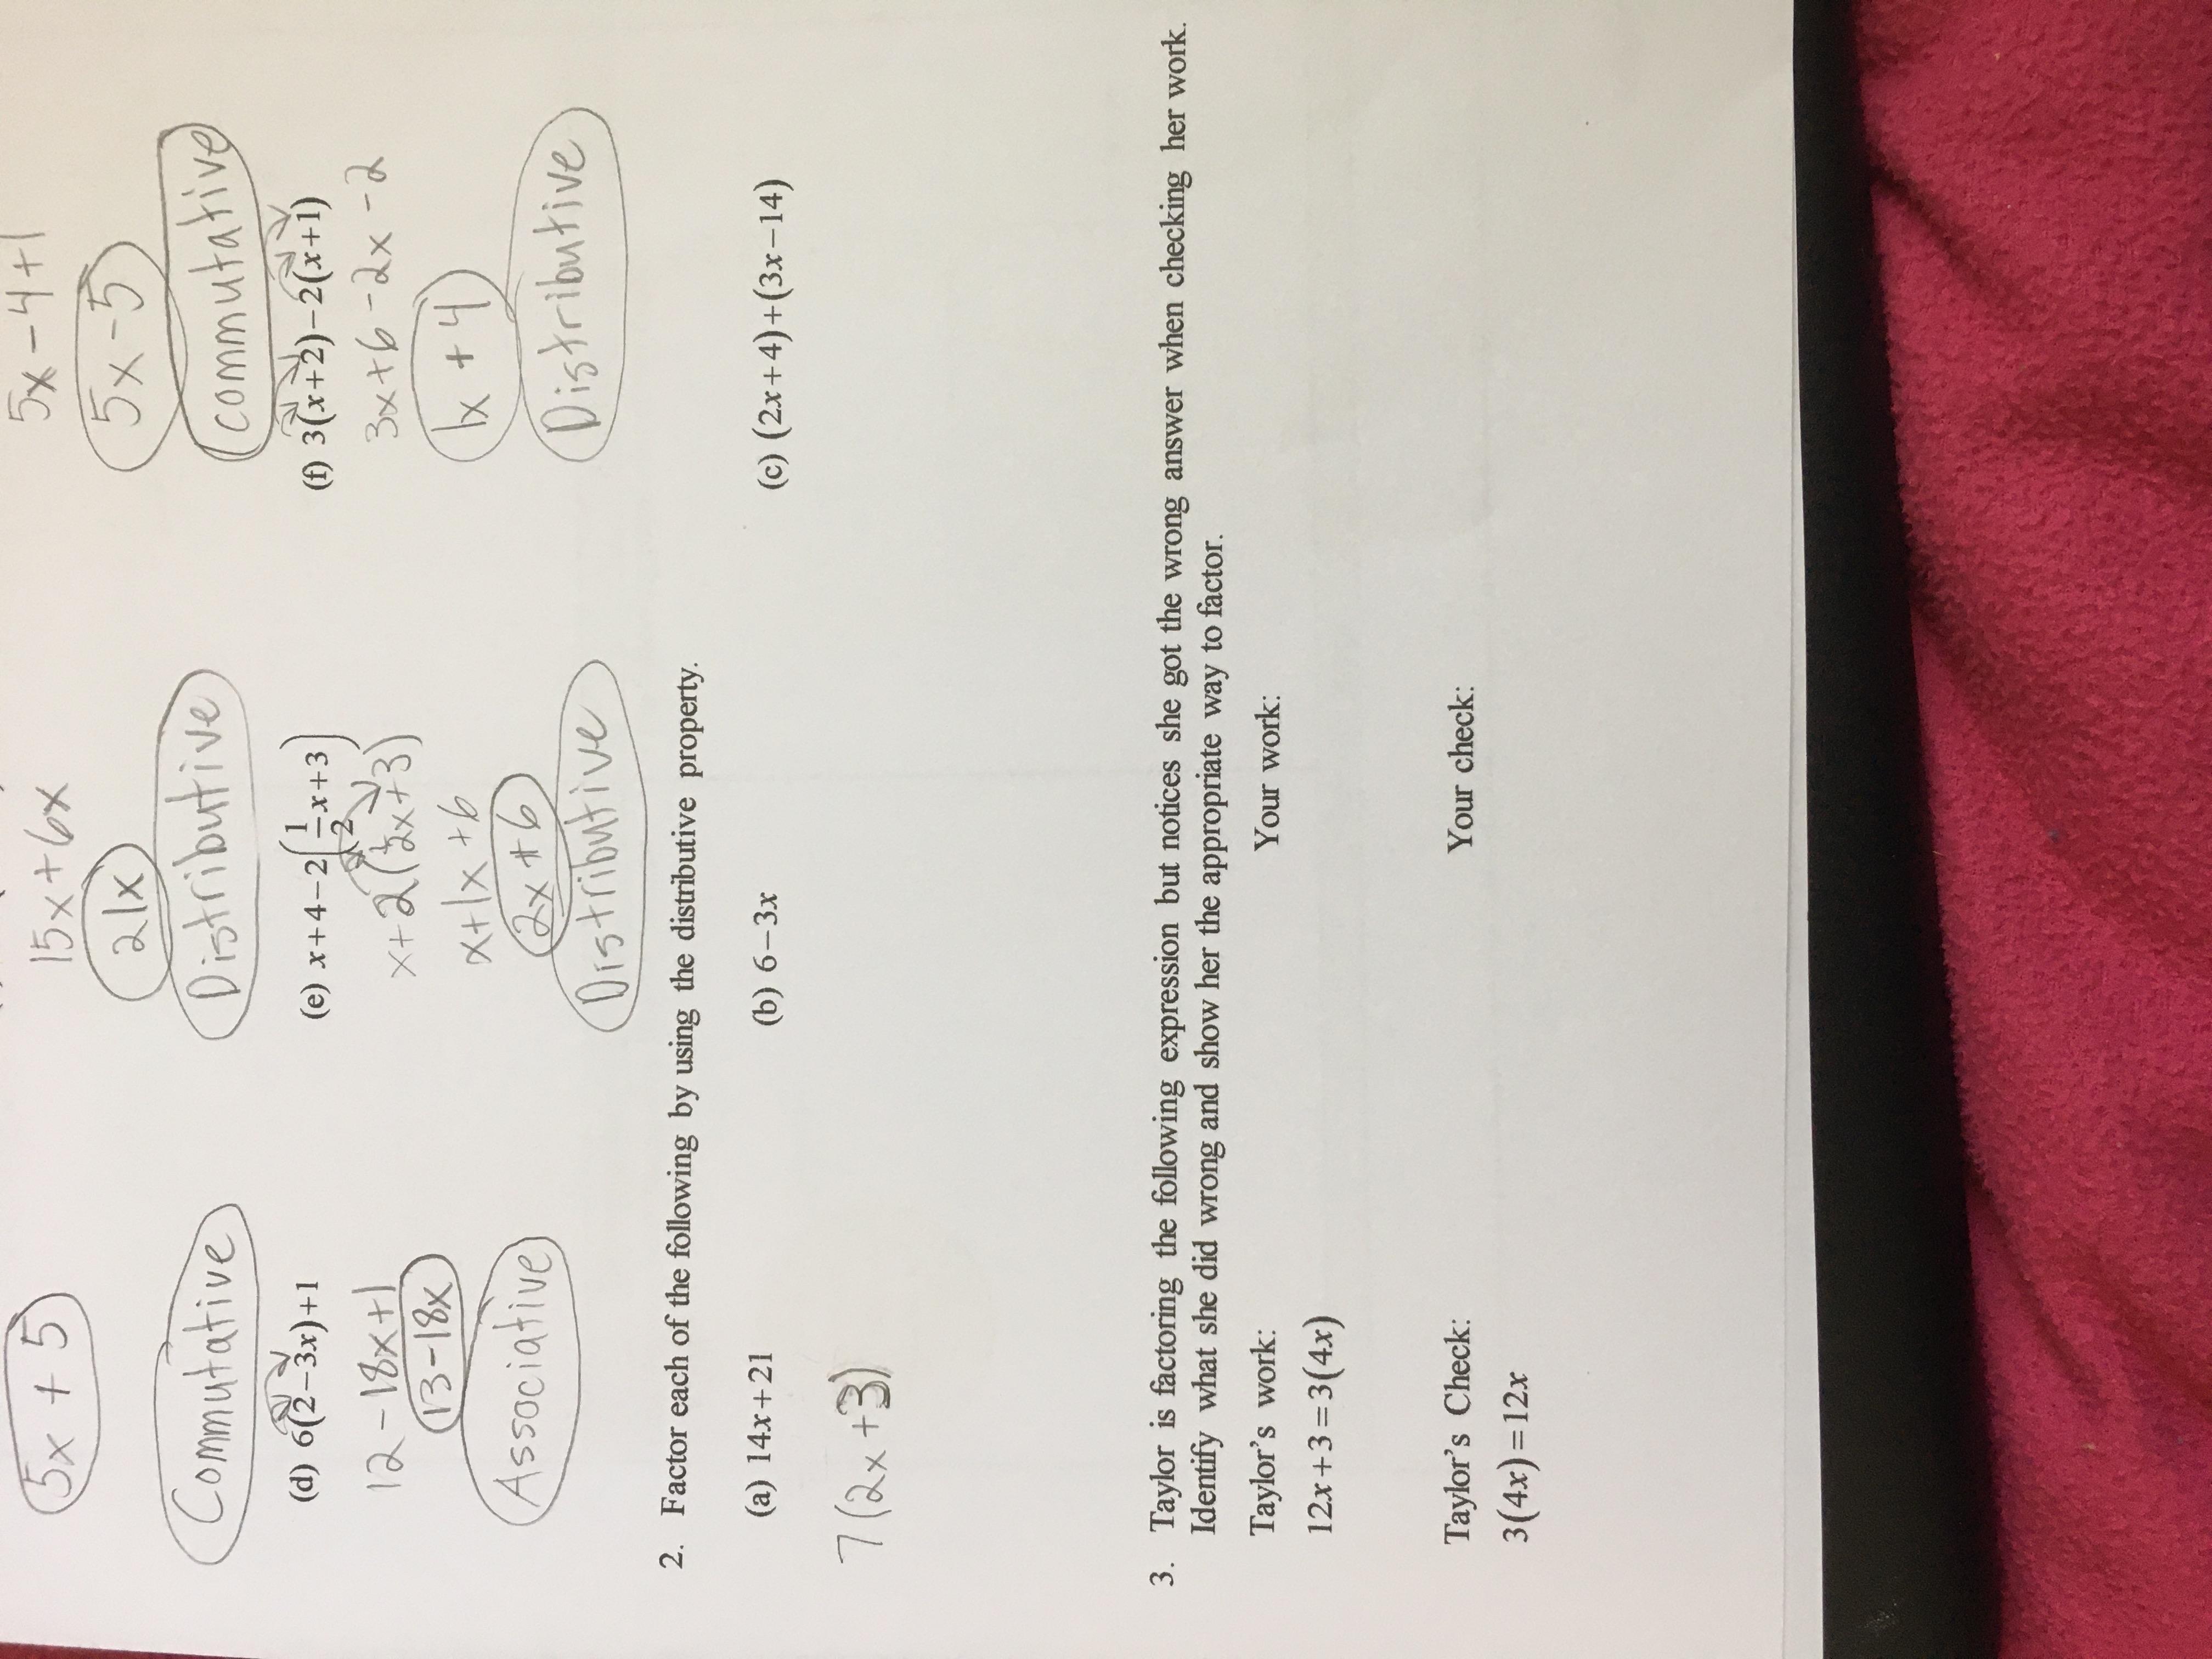 5x + 5
15x + 6x
5x - 4 + 1
21x
5x - 5
Commutative
Distributive
Commutative
(d) 6(2-3x)+1
(e) x+4-2(1/2 x+3)
(f) 3(x+2)-2(x+1)
12 - 18x + 1
x + 2(1/2x + 3)
3x + 6 - 2x - 2
13 - 18x
x + 1x + 6
1x + 4
Associative
2x + 6
Distributive
Distributive
2. Factor each of the following by using the distributive property.
(a) 14x+21
(b) 6-3x
(c) (2x+4)+(3x-14)
7(2x + 3)
3. Taylor is factoring the following expression but notices she got the wrong answer when checking her work.
Identify what she did wrong and show her the appropriate way to factor.
Taylor's work:
Your work:
12x+3=3(4x)
Taylor's Check:
Your check:
3(4x)=12x